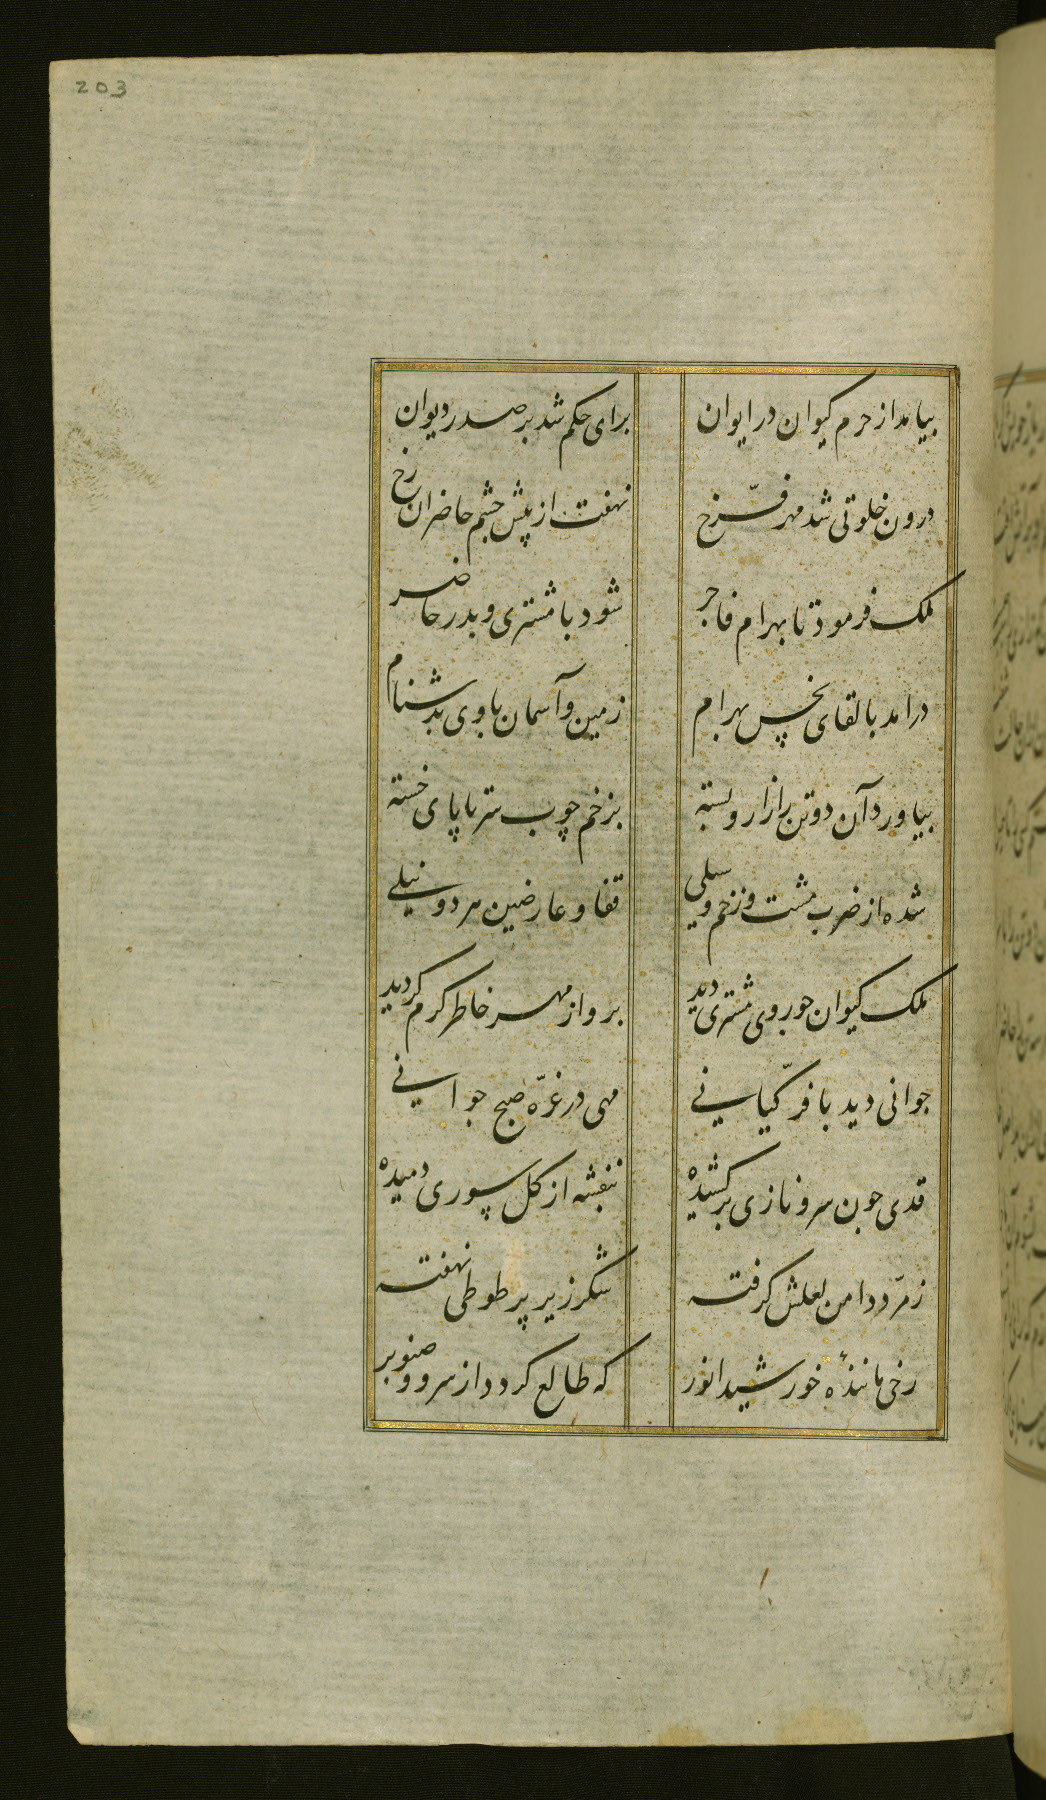 203
بیامد از حرم کیوان در ایوان برای حکم شد بر صدر دیوان
درون خلوتی شد مهر فرّخ نهفت از پیش چشم حاضران رخ
ملک فرمود تا بهرام فاجر شود با مشتری و بدر حاضر
درامد با لقای نحس بهرام زمین و آسمان با وی بدشنام
بیاورد آن دو تن را زار و بسته بزخم چوب سر تا پای خسته
شده از ضرب مشت و زخم و سیلی قفا و عارضین هر دو نیلی
ملک کیوان چو روی مشتری دید برو از مهر خاطر کرم کردید
جوانی دید با فرّ کیانی مهی در غرّه صبح جوانی
قدی چون سرو نازی برکشیده بنفشه از کل سوری دمیده
زمرّد دامن لعلش کرفته شکر زیر پر طوطی نهفته
رخی مانندهٔ خورشید انور که طالع کردد از سرو و صنوبر